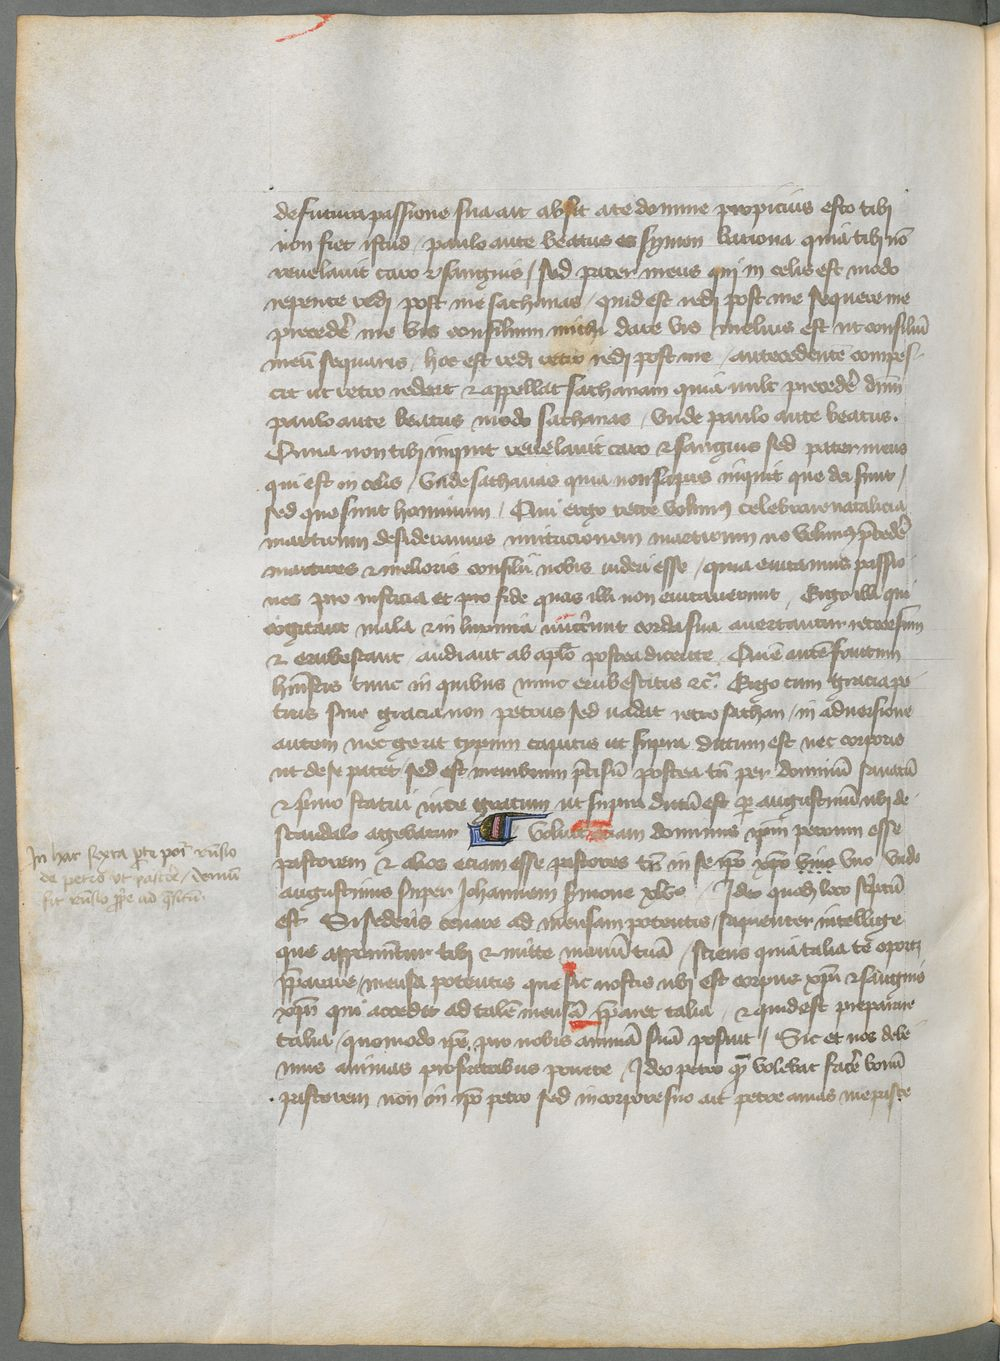 de futura passione sua ait absit a te domine propicius esto tibi
non fiet istud / paulo ante beatus es symon bariona quia tibi nō
revelavit caro et sanguis / sed pater meus qui in celis est modo
repente redi post me sathanas / quid est redi post me sequere me
precedēr me vis consilium michi dare vis melius est ut consiliū
meū sequaris / hoc est redi retro redi post me / antecedentē compes-
cit ut retro rederet et appellat sathanam quia vult precedēr dnm̄
paulo ante beatus modo sathanas / Unde paulo ante beatus .
Quia non tibi inquit revelavit caro et sanguis sed pater meus
qui est in celis / Unde sathanas quia non sapis inquit que dei sunt /
sed que sunt hominum / Qui ergo recte volumꝰ celebrare natalicia
martirum desideramus imitacionem martirum nō volumꝰ p̄cedēr
martires et melioris consilii nobis videri esse / quia evitamus passio
nes pro iusticia et pro fide quas illi non evitaverunt / Ergo illi qui
cogitant mala et in luxuria corda sua avertantur retrorsum
et erubescant audiant ab aplō postea dicente / Quē autē fructum
huīstis tunc in quibus nunc erubescitis etc̄ / Ergo cum gracia pe
trus sine gracia non petrus sed vadat retro sathan / in adversione
autem nec gerit typum capitis ut supra dictum est nec corporis
ut de se patet / sed est membrum p̄cisū postea tn̄ per dominū sanatū
et p̄mo statui inter ut supra dictū est per augustinū ubi de
scandalo agebatur Voluit etiam dominus xpm̄ petrum esse
pastorem et alios eciam esse pastores tn̄ in se ipō xpō vino uno Unde
augustinus super Johannem sermone xlvo / Ideo quodā loco sc̄ptū
est Si sederis cenare ad mensam potentis / sapienter intellige
que apponūtur tibi et mitte manū tuā / sciens quia talia te oport3
p̄parare / mensa potentis que sic nostis ubi est corpus xpī et sanguis
xpī qui accedit ad talē mensā p̄paret talia / et quid est preparare
talia / quomodo ipe pro nobis animā suā posuit / Sic et nos debe
mus animas pro fratribus ponere / Ideo petro qm̄ volebat facēr bonū
pastorem non in ipō petro sed in corpore suo ait petre amas me pasce
In hac sexta p̄te
de petro ut pastor / demū
fit